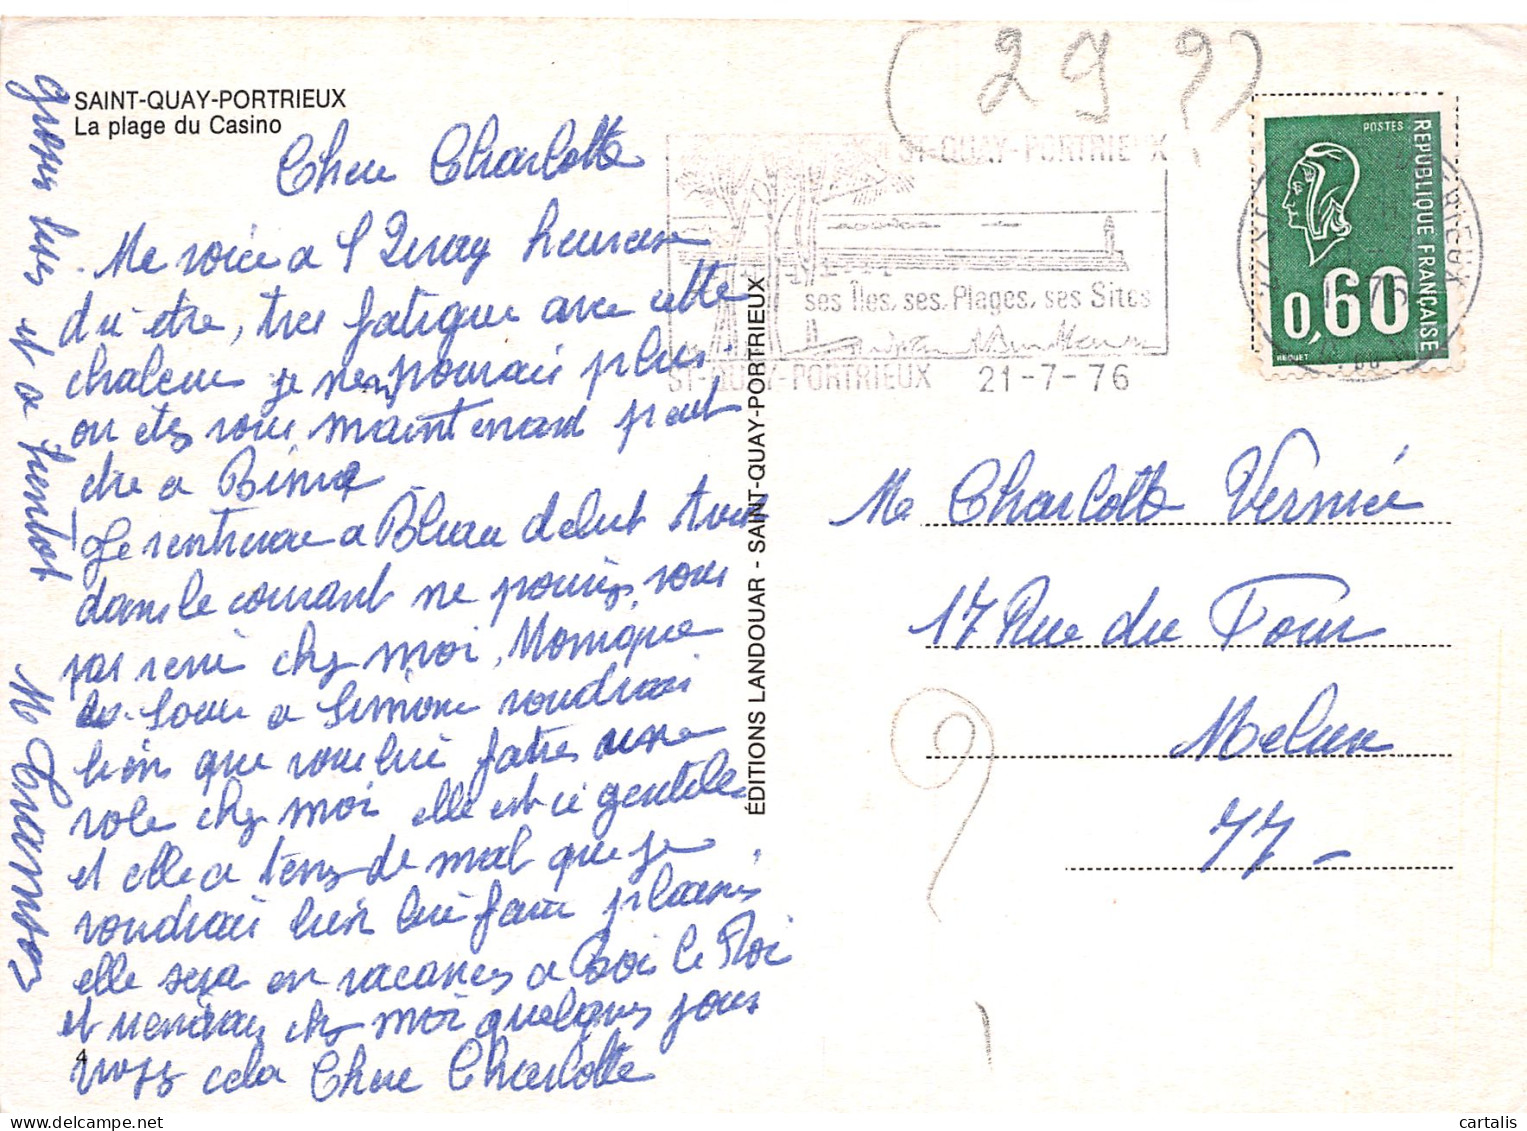 SAINT-QUAY-PORTRIEUX
La plage du Casino
Chere Charlotte
Me voice a S Quay heureuse
du être, tres fatigue avec cette
chaleur je n'en pouvais plus.
ou etes vous maintenant peut
etre a
Je rentrerai a debut
dans le courant ne pouriez vous
pas venir chez moi, Monique
la soeur a Simone voudrais
bien que vous lui faites
chez moi elle est si gentille
et elle a tens de mal que je
voudrais bien lui faire plaisir
elle sera en vacances a Bois le Roi
et viendrai chez moi quelques jours
cela Chere Charlotte
et a
M
4
ÉDITIONS LANDOUAR - SAINT-QUAY-PORTRIEUX
(29 ?)
ST-QUAY-PORTRIEUX
ses Îles, ses Plages, ses Sites
ST-QUAY-PORTRIEUX 21-7-76
POSTES
REPUBLIQUE FRANÇAISE
0,60
BEQUET
Me Charlotte Vernié
17 Rue du Four
Melun
77-